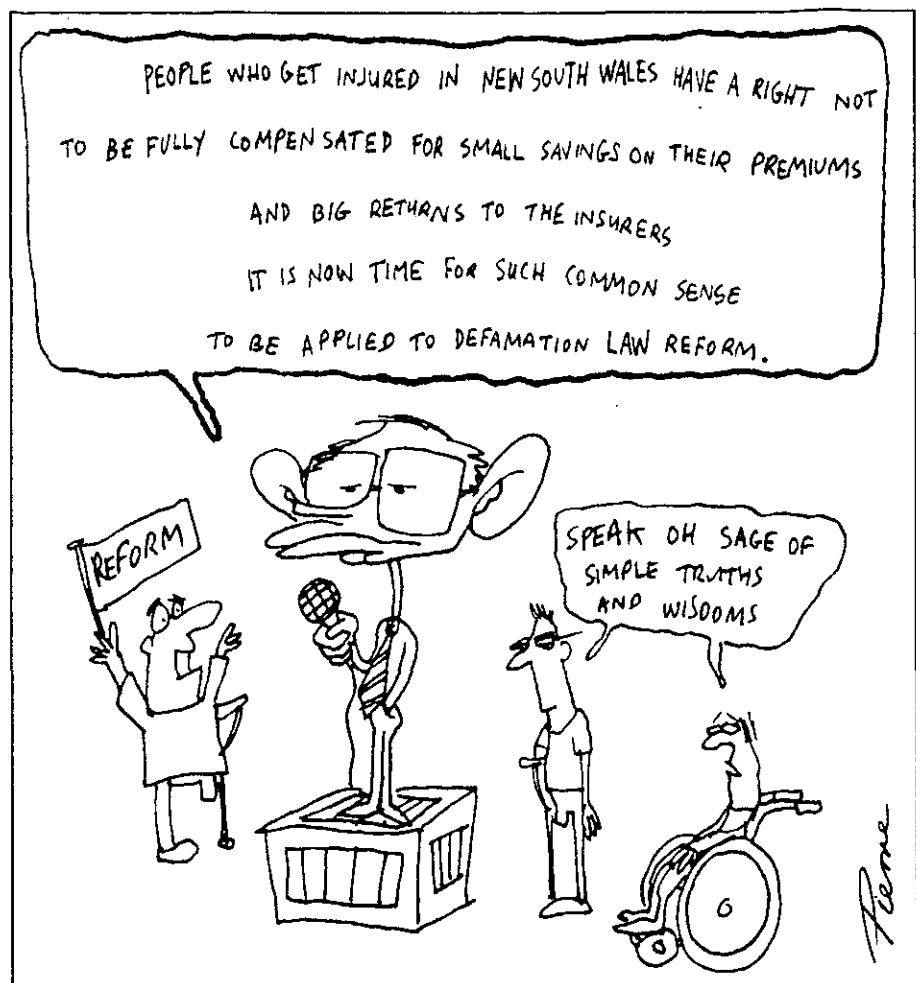 PEOPLE WHO GET INJURED IN NEW SOUTH WALES HAVE A RIGHT NOT
TO BE FULLY COMPENSATED FOR SMALL SAVINGS ON THEIR PREMIUMS
AND BIG RETURNS TO THE INSURERS
IT IS NOW TIME FOR SUCH COMMON SENSE
TO BE APPLIED TO DEFAMATION LAW REFORM.
REFORM
SPEAK OH SAGE OF
SIMPLE TRUTHS
AND WISDOMS
Pierre